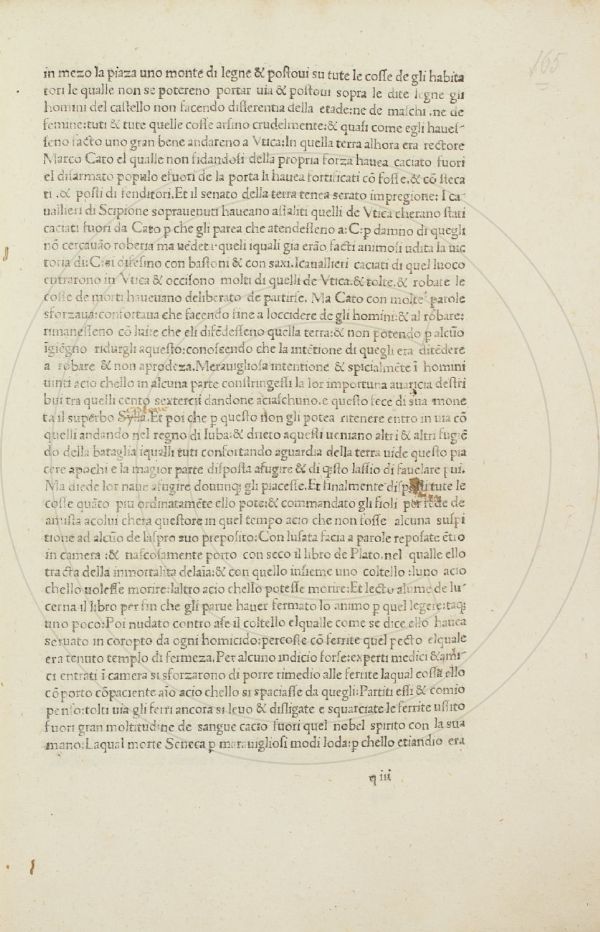 165
in mezo la piaza uno monte di legne & postoui su tute le cosse de gli habita
tori le qualle non se potereno portar uia & postoui sopra le dite legne gli
homini del castello non facendo differentia della etade:ne de maschi .ne de
femine:tuti & tute quelle cosse arsino crudelmente:& quasi come egli haues-
seno facto uno gran bene andareno a Vtica:In quella terra alhora era rectore
Marco Cato el qualle non fidandosi della propria forza hauea caciato fuori
el disarmato populo efuori de la porta li hauea fortificati cō fosse.& cō steca
ti .& posti di fenditori.Et il senato della terra tenea serato impregione: I ca-
uallieri di Scipione soprauenuti haueano assaliti quelli de Vtica cherano stati
caciati fuori da Cato p che gli parea che atendesseno a:C:p damno di quegli
nō cercauão roberia ma uedeti queli iquali gia erão facti animosi udita la uic
toria di:C:si difesino con bastoni & con saxi.Icauallieri caciati di quel luoco
entrarono in Vtica & occisono molti di quelli de Vtica:& tolte.& robate le
cosse de morti haueuano deliberato de partirse. Ma Cato con molte parole
sforzaua:confortaua che facendo fine a loccidere de gli homini:& al robare:
rimanesseno cō lui:e che eli difēdesseno quella terra:& non potendo p alcūo
īgiēgno ridurgli aquesto:conoscendo che la intētione di quegli era dītēdere
a robare & non aprodeza.Merauigliosa intentione & spicialmēte ī homini
uinti acio chello in alcuna parte constringessi la lor importuna auaricia destri
bui tra quelli cento sexterzii dandone aciaschuno.e questo fece di sua mone
ta il superbo Sylla.Et poi che p questo non gli potea ritenere entro in uia cō
quelli andando nel regno di Iuba:& drieto aquesti ueniano altri & altri fugiē
do della bataglia iqualli tuti confortando aguardia della terra uide questo pia
cere apochi e la magior parte disposta afugire & di q̄sto lassio di fauelare p ui.
Ma diede lor naue afugire dounq; gli piacesse.Et finalmente disposti tute le
cosse quāto piu ordinatamēte ello pote:& commandato gli fioli per fede de
amista acolui chera questore in quel tempo acio che non fosse alcuna suspi
tione ad alcūo de laspro suo preposito:Con lusata facia a parole reposate ētro
in camera :& nascosamente porto con seco il libro de Plato.nel qualle ello
tracta della inmortalita delaīa:& con quello insieme uno coltello :luno acio
chello uolesse morire:laltro acio chello potesse morire:Et lecto alume de lu-
cerna il libro per fin che gli parue hauer fermato lo animo p quel legere:taq;
uno poco:Poi nudato contro ase il coltello elqualle come se dice ello hauea
seruato in coropto da ogni homicido:percosse cō ferrite quel pecto elquale
era tenuto templo di fermeza.Per alcuno indicio forse:experti medici & ami-
ci entrati ī camera si sforzarono di porre rimedio alle ferrite laqual cossa ello
cō porto cōpaciente aīo acio chello si spaciasse da quegli:Partiti essi & comio
penso:tolti uia gli ferri ancora si leuo & disligate e squarciate le ferrite ussito
fuori gran moltitudine de sangue cacio fuori quel nobel spirito con la sua
mano:Laqual morte Seneca p merauigliosi modi loda:p chello etiandio era
q iii